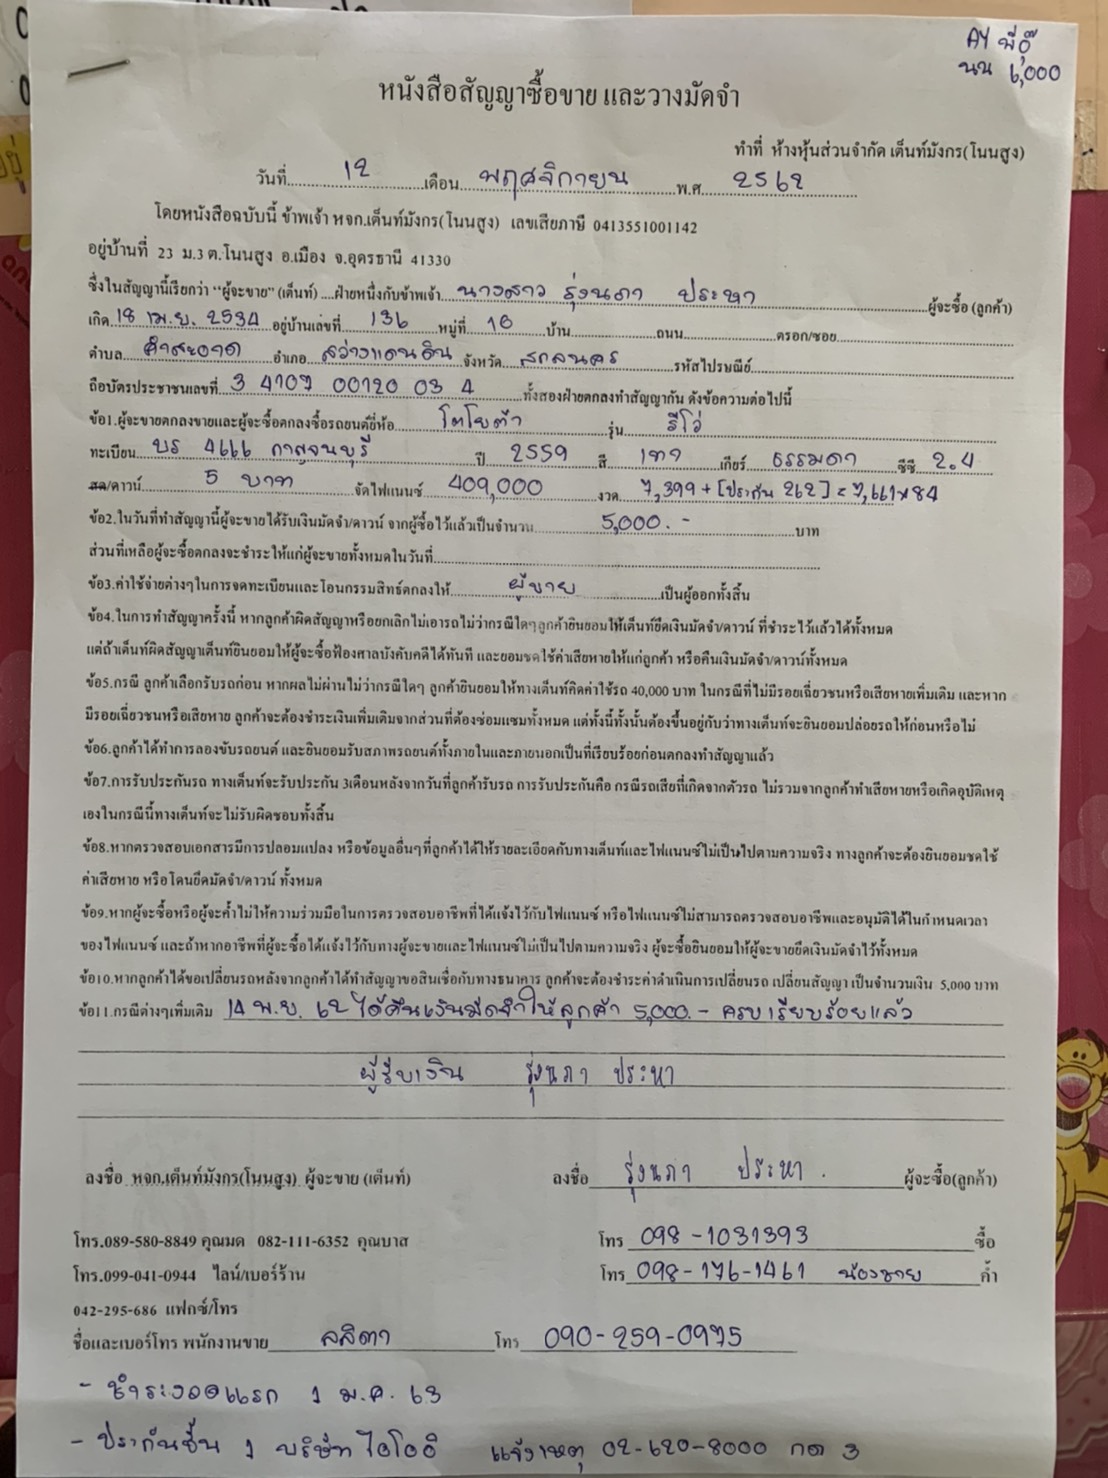 AY พี่อุ๊
นน 6,000
หนังสือสัญญาซื้อขาย และวางมัดจำ
ทำที่ ห้างหุ้นส่วนจำกัด เต็นท์มังกร(โนนสูง)
วันที่ 12 เดือน พฤศจิกายน พ.ศ. 2562
โดยหนังสือฉบับนี้ ข้าพเจ้า หจก.เต็นท์มังกร(โนนสูง) เลขเสียภาษี 0413551001142
อยู่บ้านที่ 23 ม.3 ต.โนนสูง อ.เมือง จ.อุดรธานี 41330
ซึ่งในสัญญานี้เรียกว่า "ผู้จะขาย" (เต็นท์) ....ฝ่ายหนึ่งกับข้าพเจ้า นางสาว รุ่งนภา ประหา ผู้จะซื้อ (ลูกค้า)
เกิด 18 เม.ย. 2534 อยู่บ้านเลขที่ 136 หมู่ที่ 10 บ้าน ถนน ตรอก/ซอย
ตำบล คำสะอาด อำเภอ สว่างแดนดิน จังหวัด สกลนคร รหัสไปรษณีย์
ถือบัตรประชาชนเลขที่ 3 4107 00120 03 4 ทั้งสองฝ่ายตกลงทำสัญญากัน ดังข้อความต่อไปนี้
ข้อ1.ผู้จะขายตกลงขายและผู้จะซื้อตกลงซื้อรถยนต์ยี่ห้อ โตโยต้า รุ่น รีโว่
ทะเบียน บร 4666 กาญจนบุรี ปี 2559 สี เทา เกียร์ ธรรมดา ซีซี 2.4
สด/ดาวน์ 5 บาท จัดไฟแนนซ์ 409,000 งวด 7,399 + [ประกัน 262] = 7,661 x 84
ข้อ2.ในวันที่ทำสัญญานี้ผู้จะขายได้รับเงินมัดจำ/ดาวน์ จากผู้ซื้อไว้แล้วเป็นจำนวน 5,000.- บาท
ส่วนที่เหลือผู้จะซื้อตกลงจะชำระให้แก่ผู้จะขายทั้งหมดในวันที่
ข้อ3.ค่าใช้จ่ายต่างๆในการจดทะเบียนและโอนกรรมสิทธิ์ตกลงให้ ผู้ขาย เป็นผู้ออกทั้งสิ้น
ข้อ4.ในการทำสัญญาครั้งนี้ หากลูกค้าผิดสัญญาหรือยกเลิกไม่เอารถไม่ว่ากรณีใดๆลูกค้ายินยอมให้เต็นท์ยึดเงินมัดจำ/ดาวน์ ที่ชำระไว้แล้วได้ทั้งหมด
แต่ถ้าเต็นท์ผิดสัญญาเต็นท์ยินยอมให้ผู้จะซื้อฟ้องศาลบังคับคดีได้ทันที และยอมชดใช้ค่าเสียหายให้แก่ลูกค้า หรือคืนเงินมัดจำ/ดาวน์ทั้งหมด
ข้อ5.กรณี ลูกค้าเลือกรับรถก่อน หากผลไม่ผ่านไม่ว่ากรณีใดๆ ลูกค้ายินยอมให้ทางเต็นท์คิดค่าใช้รถ 40,000 บาท ในกรณีที่ไม่มีรอยเฉี่ยวชนหรือเสียหายเพิ่มเติม และหาก
มีรอยเฉี่ยวชนหรือเสียหาย ลูกค้าจะต้องชำระเงินเพิ่มเติมจากส่วนที่ต้องซ่อมแซมทั้งหมด แต่ทั้งนี้ทั้งนั้นต้องขึ้นอยู่กับว่าทางเต็นท์จะยินยอมปล่อยรถให้ก่อนหรือไม่
ข้อ6.ลูกค้าได้ทำการลองขับรถยนต์ และยินยอมรับสภาพรถยนต์ทั้งภายในและภายนอกเป็นที่เรียบร้อยก่อนตกลงทำสัญญาแล้ว
ข้อ7.การรับประกันรถ ทางเต็นท์จะรับประกัน 3เดือนหลังจากวันที่ลูกค้ารับรถ การรับประกันคือ กรณีรถเสียที่เกิดจากตัวรถ ไม่รวมจากลูกค้าทำเสียหายหรือเกิดอุบัติเหตุ
เองในกรณีนี้ทางเต็นท์จะไม่รับผิดชอบทั้งสิ้น
ข้อ8.หากตรวจสอบเอกสารมีการปลอมแปลง หรือข้อมูลอื่นๆที่ลูกค้าได้ให้รายละเอียดกับทางเต็นท์และไฟแนนซ์ไม่เป็นไปตามความจริง ทางลูกค้าจะต้องยินยอมชดใช้
ค่าเสียหาย หรือโดนยึดมัดจำ/ดาวน์ ทั้งหมด
ข้อ9.หากผู้จะซื้อหรือผู้จะค้ำไม่ให้ความร่วมมือในการตรวจสอบอาชีพที่ได้แจ้งไว้กับไฟแนนซ์ หรือไฟแนนซ์ไม่สามารถตรวจสอบอาชีพและอนุมัติได้ในกำหนดเวลา
ของไฟแนนซ์ และถ้าหากอาชีพที่ผู้จะซื้อได้แจ้งไว้กับทางผู้จะขายและไฟแนนซ์ไม่เป็นไปตามความจริง ผู้จะซื้อยินยอมให้ผู้จะขายยึดเงินมัดจำไว้ทั้งหมด
ข้อ10.หากลูกค้าได้ขอเปลี่ยนรถหลังจากลูกค้าได้ทำสัญญาขอสินเชื่อกับทางธนาคาร ลูกค้าจะต้องชำระค่าดำเนินการเปลี่ยนรถ เปลี่ยนสัญญา เป็นจำนวนเงิน 5,000 บาท
ข้อ11.กรณีต่างๆเพิ่มเติม 14 พ.ย. 62 ได้คืนเงินมัดจำให้ลูกค้า 5,000.- ครบเรียบร้อยแล้ว
ผู้รับเงิน รุ่งนภา ประหา
ลงชื่อ หจก.เต็นท์มังกร(โนนสูง) ผู้จะขาย (เต็นท์) ลงชื่อ รุ่งนภา ประหา. ผู้จะซื้อ(ลูกค้า)
โทร.089-580-8849 คุณมด 082-111-6352 คุณบาส โทร 098-1031393 ซื้อ
โทร.099-041-0944 ไลน์/เบอร์ร้าน โทร 098-176-1461 น้องชาย ค้ำ
042-295-686 แฟกซ์/โทร
ชื่อและเบอร์โทร พนักงานขาย ลลิตา โทร 090-259-0975
- ชำระงวดแรก 1 ม.ค. 63
- ประกันชั้น 1 บริษัท ไอโออิ แจ้งเหตุ 02-620-8000 กด 3